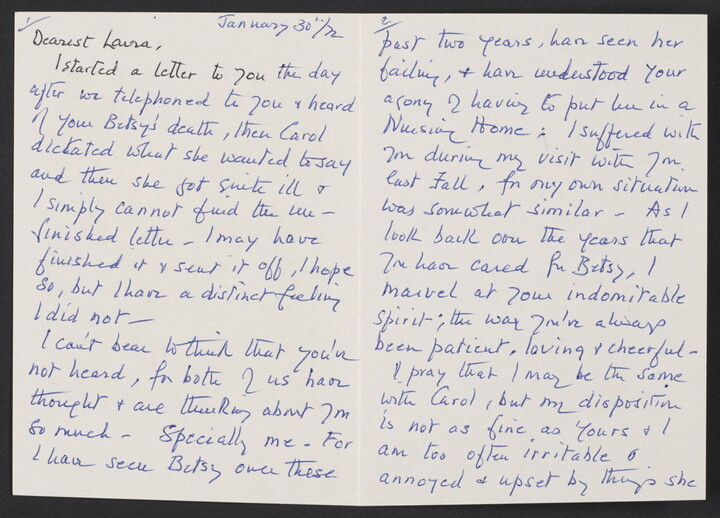 1/
January 30th/72
Dearest Laura,
I started a letter to you the day
after we telephoned to you & heard
of your Betsy's death, then Carol
dictated what she wanted to say
and then she got quite ill &
I simply cannot find the un-
finished letter - I may have
finished it & sent it off, I hope
so, but I have a distinct feeling
I did not —
I can't bear to think that you've
not heard, for both of us have
thought & are thinking about you
so much - Specially me - For
I have seen Betsy over these
2/
past two years, have seen her
failing, & have understood your
agony of having to put her in a
Nursing Home; I suffered with
you during my visit with you
last Fall, for my own situation
was somewhat similar - As I
look back over the years that
you have cared for Betsy, I
marvel at your indomitable
spirit; the way you've always
been patient, loving & cheerful -
I pray that I may be the same
with Carol, but my disposition
is not as fine as yours & I
am too often irritable &
annoyed & upset by things she